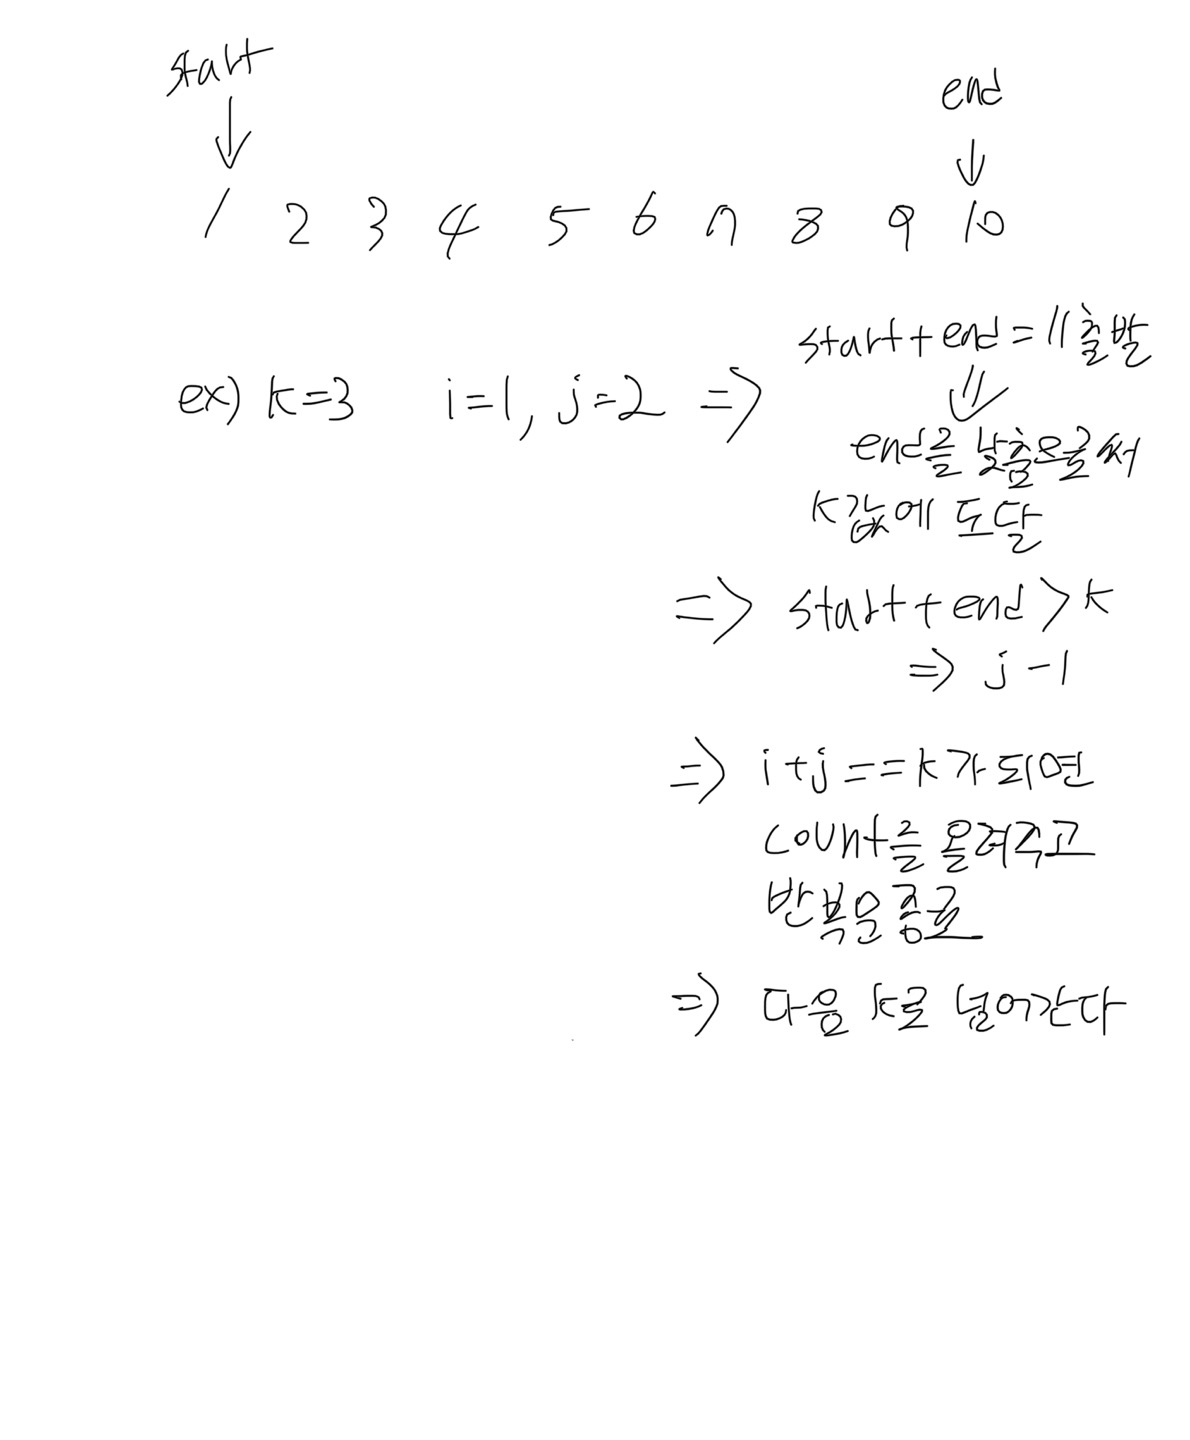 start
end
1 2 3 4 5 6 7 8 9 10
start+end=11출발
ex) k=3 i=1, j=2 =>
end를 낮춤으로써
k값에 도달
=> start+end>k
=> j-1
=> i+j==k가 되면
count를 올려주고
반복문 종료
=> 다음 k로 넘어간다